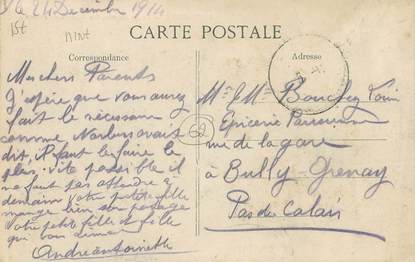 le 24 Decembre 1914
CARTE POSTALE
Correspondance
Adresse
Mes chers Parents
J'espère que vous aurez
fait le nécessaire
comme Norbert avait
dit, il faut le faire le
plus vite possible il
ne faut pas attendre a
demain votre petite fille
mange bien son potage
votre petite fille et fille
qui vous aiment
Andrée Antoinette
Mr & Mme Bouchez Louis
Epicerie Parisienne
rue de la gare
à Bully-Grenay
Pas de Calais
62